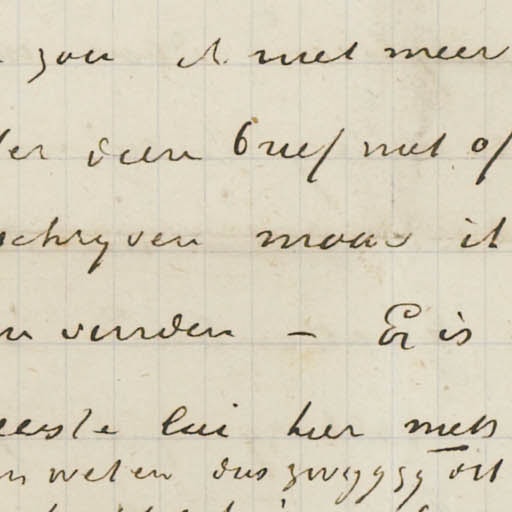 zou ik niet meer
deen brief niet of
schryven maar ik
vinden — Er is
meeste lui hier niets
weten dus zwyg gy dit